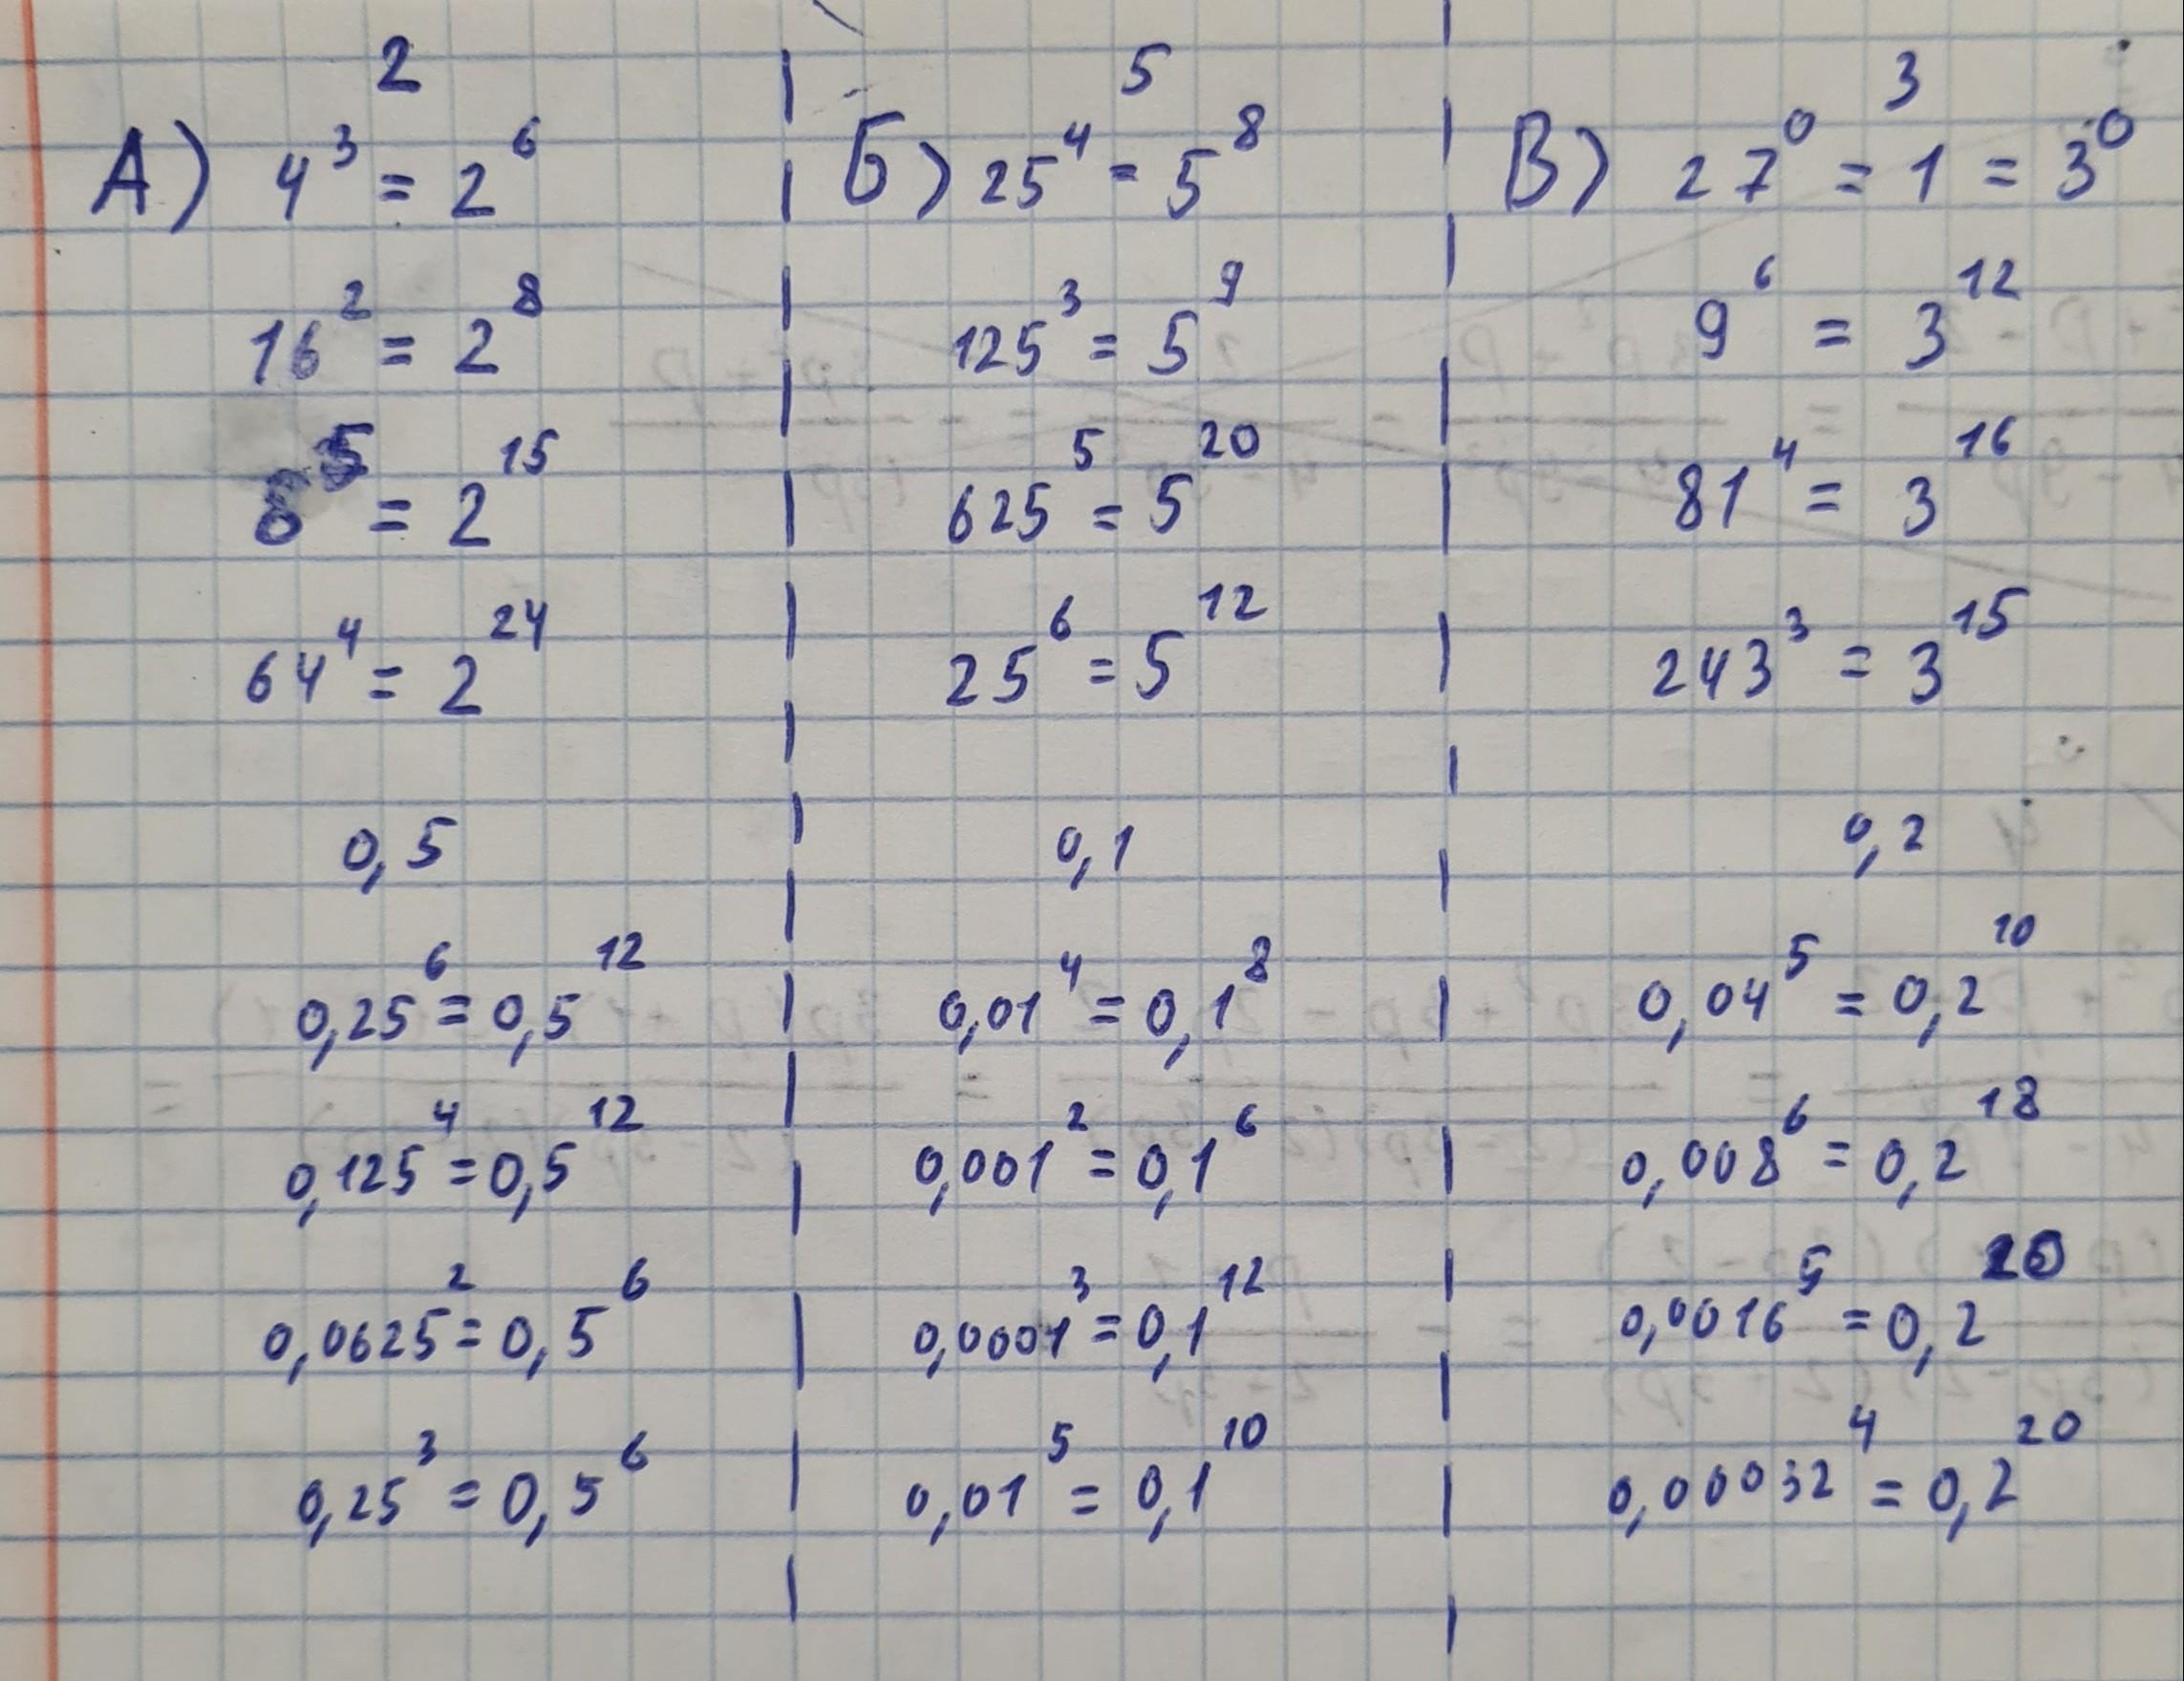 2
А) 4³ = 2⁶
16² = 2⁸
8⁵ = 2¹⁵
64⁴ = 2²⁴
0,5
0,25⁶ = 0,5¹²
0,125⁴ = 0,5¹²
0,0625² = 0,5⁶
0,25³ = 0,5⁶
5
Б) 25⁴ = 5⁸
125³ = 5⁹
625⁵ = 5²⁰
25⁶ = 5¹²
0,1
0,01⁴ = 0,1⁸
0,001² = 0,1⁶
0,0001³ = 0,1¹²
0,01⁵ = 0,1¹⁰
3
В) 27⁰ = 1 = 3⁰
9⁶ = 3¹²
81⁴ = 3¹⁶
243³ = 3¹⁵
0,2
0,04⁵ = 0,2¹⁰
0,008⁶ = 0,2¹⁸
0,0016⁵ = 0,2²⁰
0,00032⁴ = 0,2²⁰